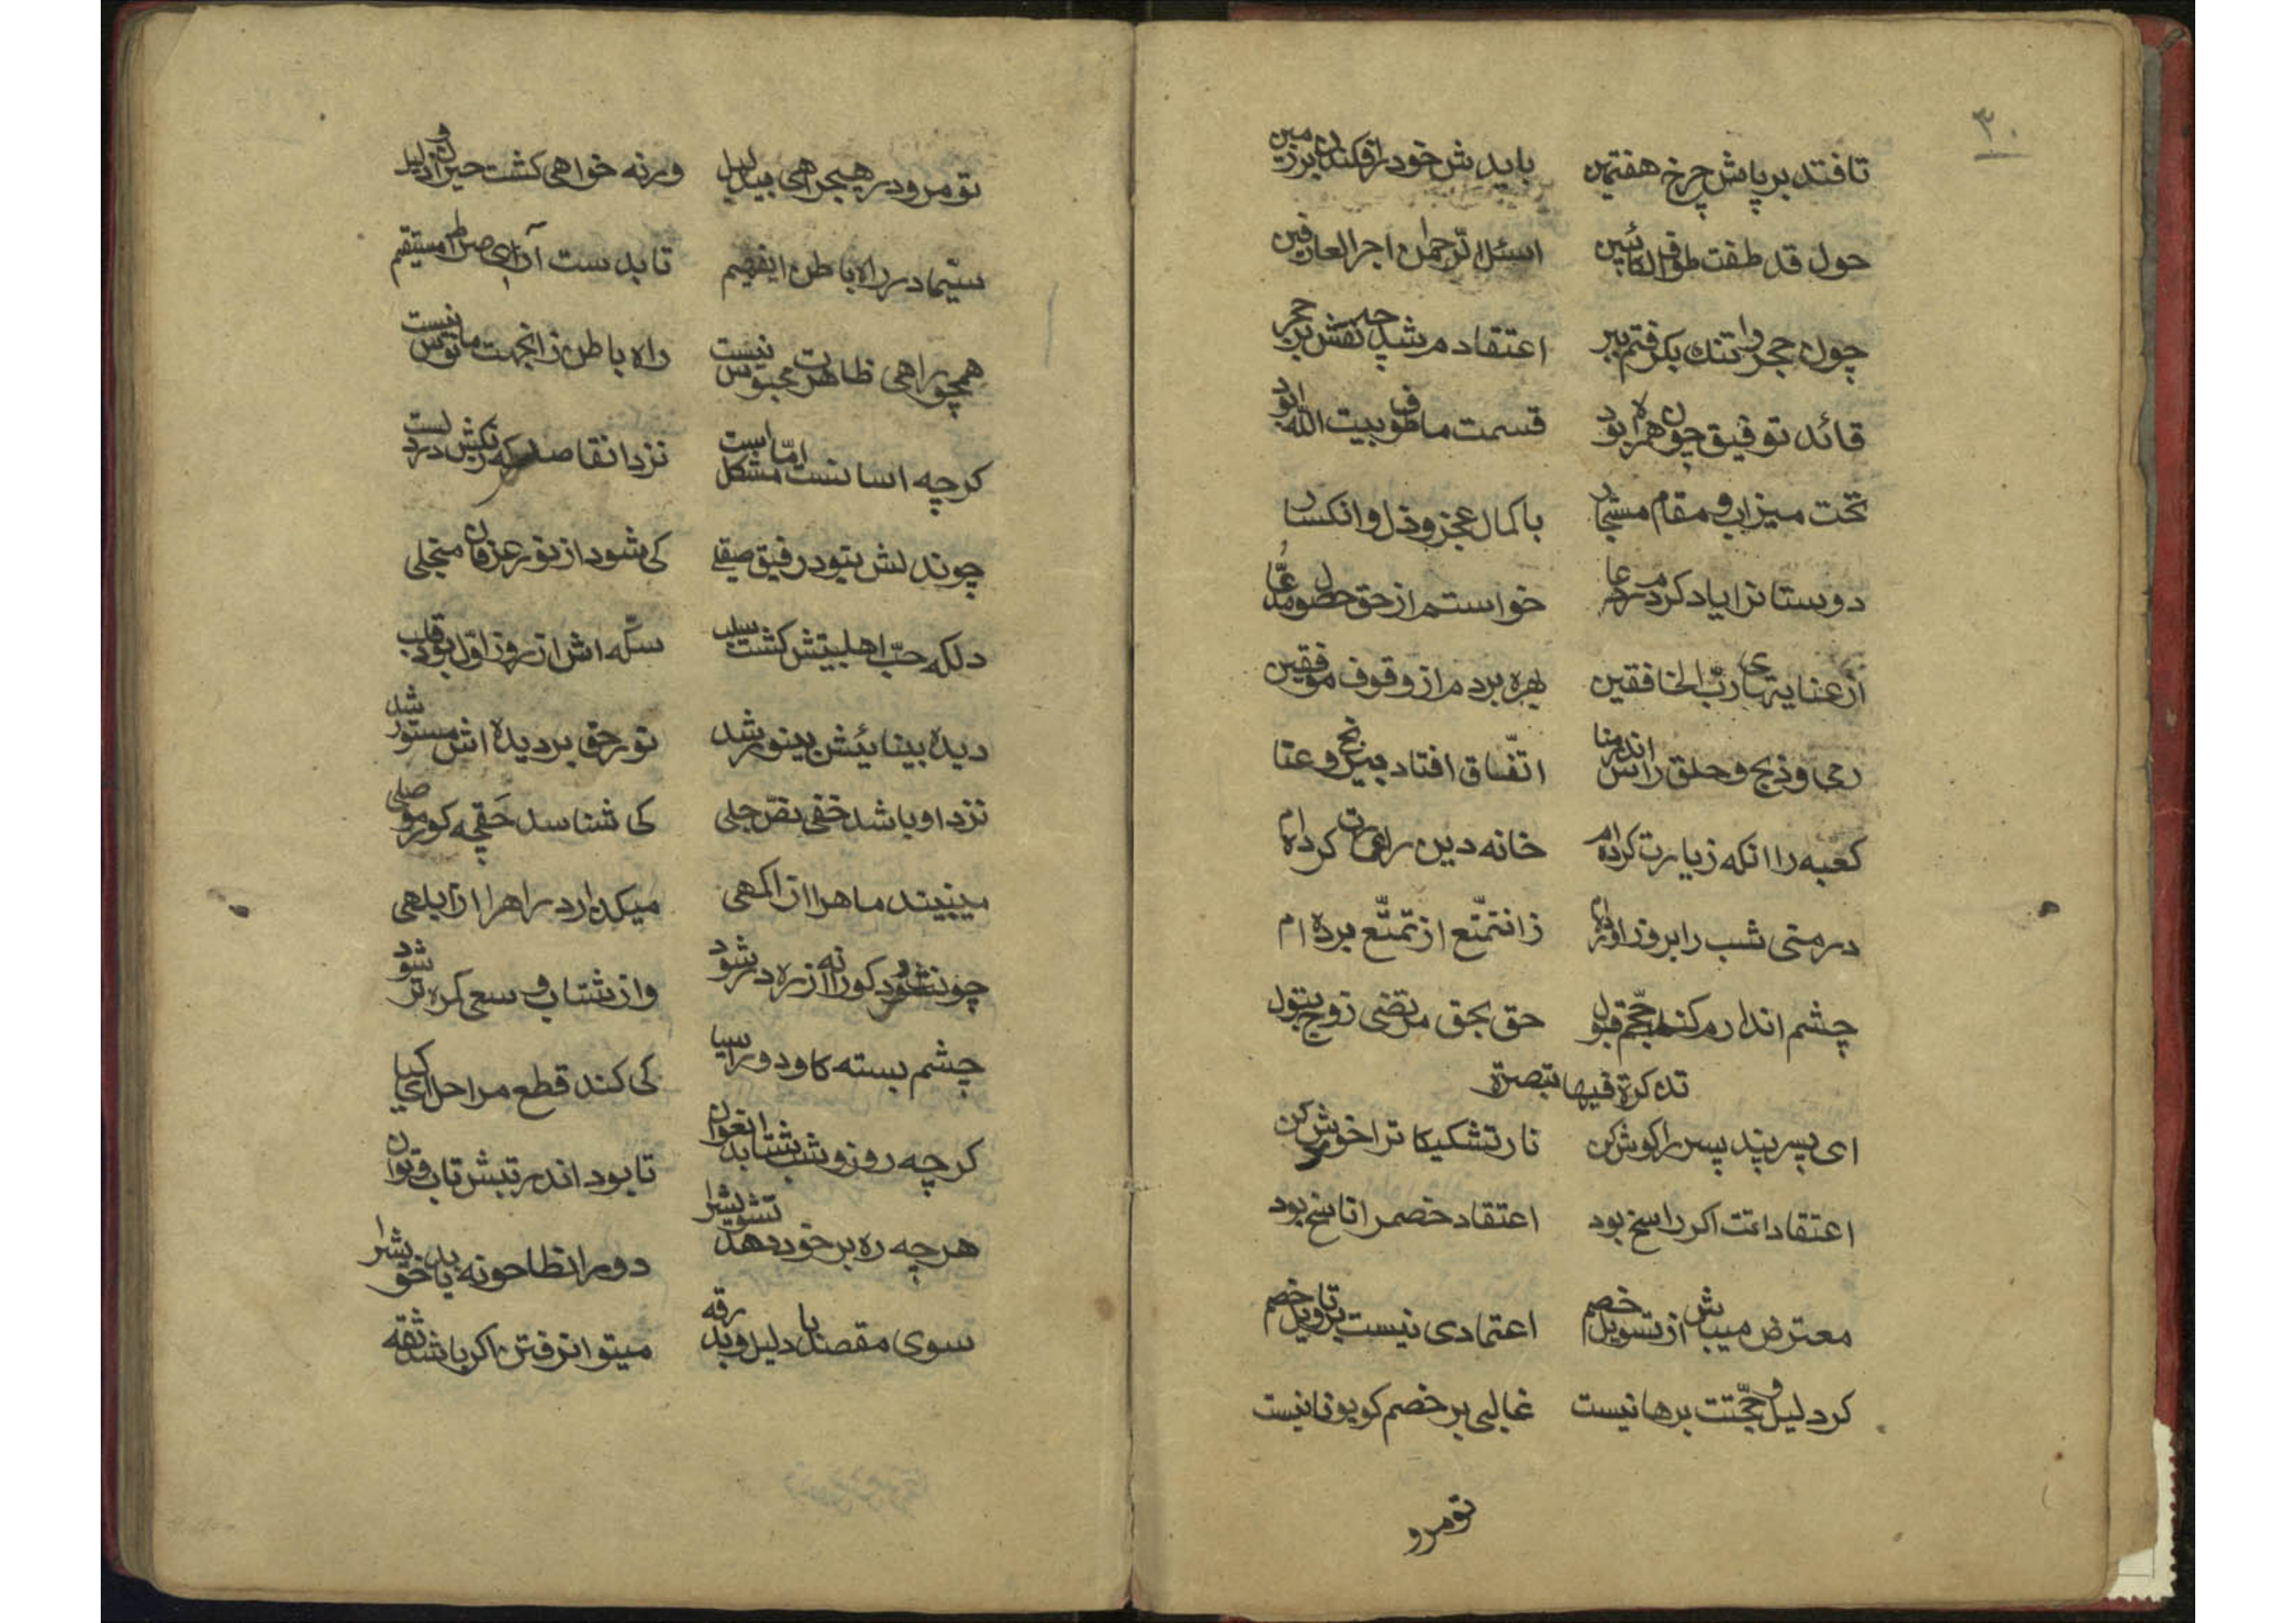 ۳۰
تا فتد بر پاش چرخ هفتمین    بایدش خود را فکندن بر زمین
حول قد طفت طواف الکائبین    اسئل الرّحمن اجر العارفین
چون حجر را تنک بکرفتم ببر    اعتقادم شد چه نقش بر حجر
قائد توفیق چون همره بود    قسمت ما طوف بیت الله بود
تحت میزاب و مقام مستجار    با کمال عجز و ذل و انکسار
دوستانرا یاد کردم در دعا    خواستم از حق حصول مدّعا
از عنایتهای ربّ الخافقین    بهره بردم از وقوف موقفین
رمی و ذبح و حلق راس اندر منا    اتّفاق افتاد بی رنج و عنا
کعبه را انکه زیارت کرده ام    خانه دین را عمارت کرده ام
در متی شب را بروز اورده ام    زان تمتّع از تمتّع برده ام
چشم اندارم کند حجّم قبول    حق بحق مرتضی زوج بتول
تذکرة فیها تبصرة
ای پسر پند پسر را کوش کن    نار تشکیکات را خاموش کن
اعتقادانت اکر راسخ بود    اعتقاد خصم را ناسخ بود
معترض میباش از تسویل خصم    اعتمادی نیست بر تاویل خصم
کر دلیل و حجّتت برهانیست    غالبی بر خصم کو یونانیست
تو مرو
تو مرو در هیچ راهی بی دلیل    ورنه خواهی کشت حیران و ذلیل
سیّما در راه باطن ای فهیم    تا بدست آری صراط مستقیم
همچو راهی ظاهرت محبوس نیست    راه باطن زانجهت مانوس نیست
کرچه اسانست امّا مشکل است    نزد انقاصد که رنکش در دلست
چون دلش بی‌تود رفیق صیقلی    کی شود از نور عرفان منجلی
دلکه حبّ اهلبیتش کشت سلب    سکّه اش از روز اوّل بود قلب
دیده بینائیش بی‌نور شد    نور حق بر دیده اش مستور شد
نزد او باشد خفی نصّ جلی    کی شناسد حَقچه کور موصلی
می‌نبیند ماهرا از اکمهی    میکذارد راهرا از ابلهی
چون شود کورانه از ره در شود    واز شتاب و سعی کره تر شود
چشم بسته کاو دور اسیا    کی کند قطع مراحل ای کیا
کرچه روز و شب شتابد انغوان    تا بود اندر تنش تاب و توان
هرچه ره بر خود دهد تشویشرا    دور انطاحونه یابد خویشرا
سوی مقصد با دلیل و بدرقه    میتوان رفتن اکر باشد ثقه